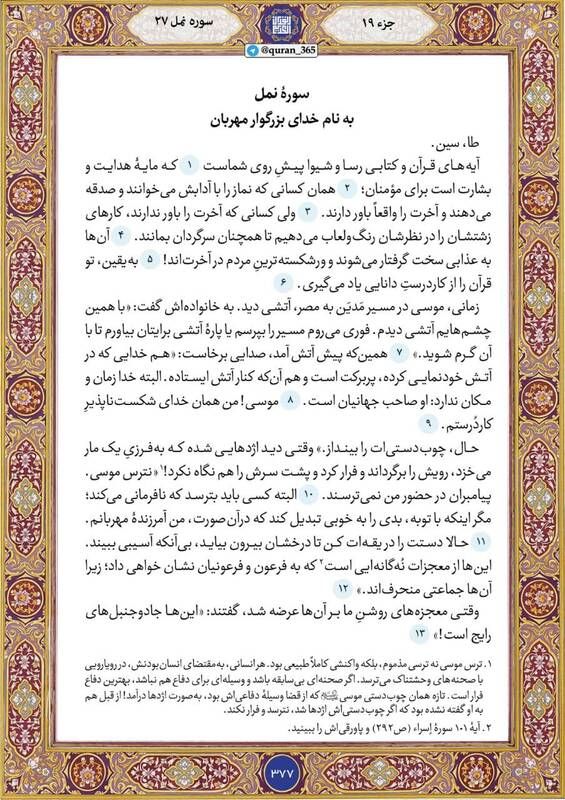 جزء ۱۹
سوره نمل ۲۷
@quran_365
سورهٔ نمل
به نام خدای بزرگوار مهربان
طا، سین.
آیه‌های قرآن و کتابی رسا و شیوا پیشِ روی شماست ۱ که مایهٔ هدایت و
بشارت است برای مؤمنان؛ ۲ همان کسانی که نماز را با آدابش می‌خوانند و صدقه
می‌دهند و آخرت را واقعاً باور دارند. ۳ ولی کسانی که آخرت را باور ندارند، کارهای
زشتشان را در نظرشان رنگ‌ولعاب می‌دهیم تا همچنان سرگردان بمانند. ۴ آن‌ها
به عذابی سخت گرفتار می‌شوند و ورشکسته‌ترینِ مردم در آخرت‌اند! ۵ به‌یقین، تو
قرآن را از کاردرستِ دانایی یاد می‌گیری. ۶
زمانی، موسی در مسیر مَدیَن به مصر، آتشی دید. به خانواده‌اش گفت: «با همین
چشم‌هایم آتشی دیدم. فوری می‌روم مسیر را بپرسم یا پارهٔ آتشی برایتان بیاورم تا با
آن گرم شوید.» ۷ همین‌که پیش آتش آمد، صدایی برخاست: «هم خدایی که در
آتش خودنمایی کرده، پربرکت است و هم آن‌که کنار آتش ایستاده. البته خدا زمان و
مکان ندارد: او صاحب جهانیان است. ۸ موسی! من همان خدای شکست‌ناپذیرِ
کاردُرستم. ۹
حال، چوب‌دستی‌ات را بینداز.» وقتی دید اژدهایی شده که به‌فرزیِ یک مار
می‌خزد، رویش را برگرداند و فرار کرد و پشت سرش را هم نگاه نکرد!۱ «نترس موسی.
پیامبران در حضور من نمی‌ترسند. ۱۰ البته کسی باید بترسد که نافرمانی می‌کند؛
مگر اینکه با توبه، بدی را به خوبی تبدیل کند که درآن‌صورت، من آمرزندهٔ مهربانم.
۱۱ حالا دستت را در یقه‌ات کن تا درخشان بیرون بیاید، بی‌آنکه آسیبی ببیند.
این‌ها از معجزات نُه‌گانه‌ایی است۲ که به فرعون و فرعونیان نشان خواهی داد؛ زیرا
آن‌ها جماعتی منحرف‌اند.» ۱۲
وقتی معجزه‌های روشنِ ما بر آن‌ها عرضه شد، گفتند: «این‌ها جادوجنبل‌های
رایج است!» ۱۳
۱. ترس موسی نه ترسی مذموم، بلکه واکنشی کاملاً طبیعی بود. هر انسانی، به‌مقتضای انسان‌بودنش، در رویارویی
با صحنه‌های وحشتناک می‌ترسد. اگر صحنه‌ای بی‌سابقه باشد و وسیله‌ای برای دفاع هم نباشد، بهترین دفاع
فرار است. تازه همان چوب‌دستی موسی که از قضا وسیلهٔ دفاعی‌اش بود، به‌صورت اژدها درآمد! از قبل هم
به او گفته نشده بود که اگر چوب‌دستی‌اش اژدها شد، نترسد و فرار نکند.
۲. آیهٔ ۱۰۱ سورهٔ اِسراء (ص۲۹۲) و پاورقی‌اش را ببینید.
۳۷۷